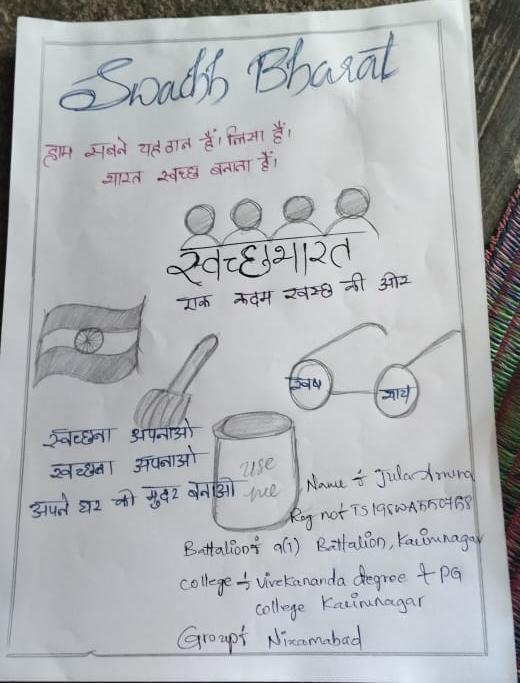 Swachh Bharat
हाम सबने यह ठान हैं। लिया हैं।
भारत स्वच्छ बनाता हैं।
स्वच्छ भारत
एक कदम स्वच्छ की ओर
स्वच्छ
भारत
स्वच्छता अपनाओ
स्वच्छता अपनाओ
अपने घर को सुदर बनाओ
use
me
Name :- Jula
Reg no:-
Battalion :- 9(1) Battalion, Karimnagar
college :- Vivekananda degree + PG
college Karimnagar
Group :- Nizamabad